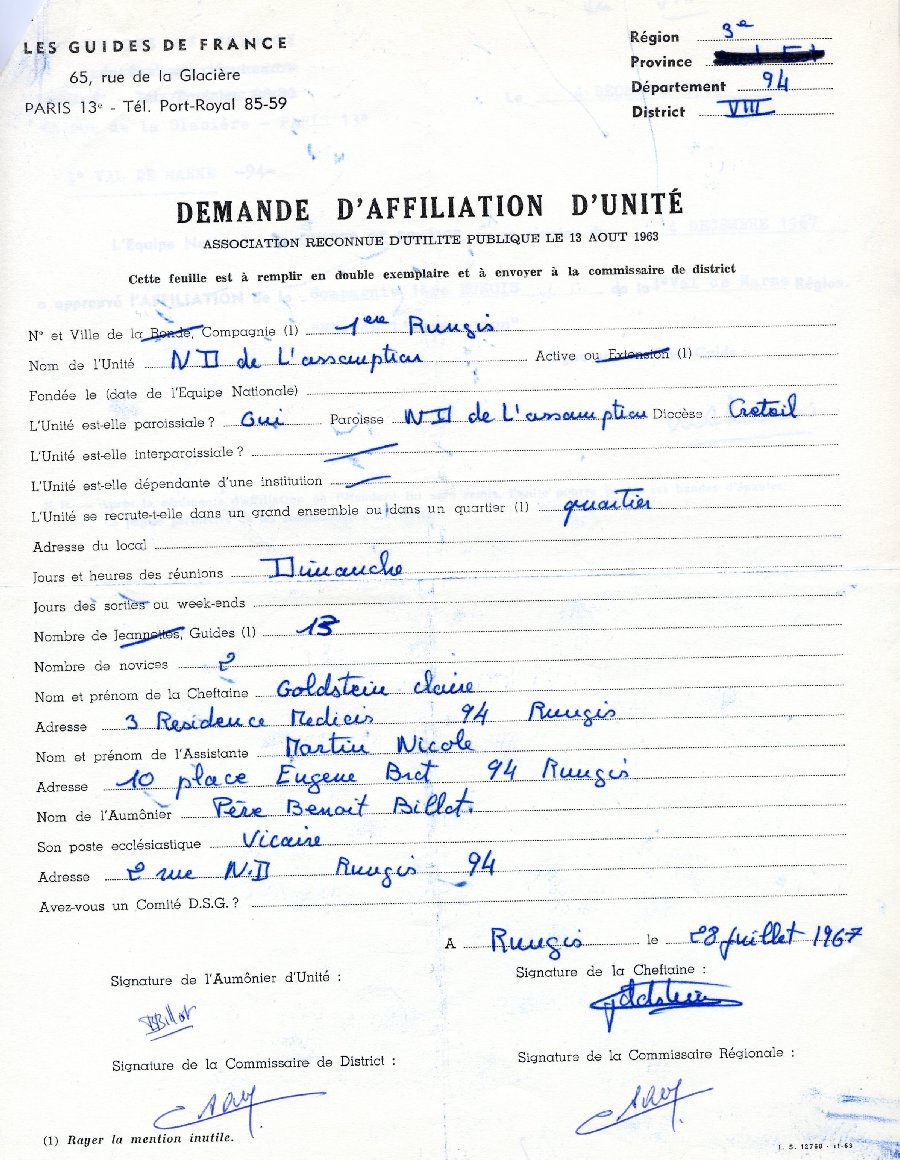 LES GUIDES DE FRANCE
65, rue de la Glacière
PARIS 13e - Tél. Port-Royal 85-59
Région 3e
Province
Département 94
District VIII
DEMANDE D'AFFILIATION D'UNITÉ
ASSOCIATION RECONNUE D'UTILITE PUBLIQUE LE 13 AOUT 1963
Cette feuille est à remplir en double exemplaire et à envoyer à la commissaire de district
N° et Ville de la Ronde, Compagnie (1) 1ere Rungis
Nom de l'Unité ND de L'assomption Active ou Extension (1)
Fondée le (date de l'Equipe Nationale)
L'Unité est-elle paroissiale ? Oui Paroisse ND de L'assomption Diocèse Creteil
L'Unité est-elle interparoissiale ?
L'Unité est-elle dépendante d'une institution
L'Unité se recrute-t-elle dans un grand ensemble ou dans un quartier (1) quartier
Adresse du local
Jours et heures des réunions Dimanche
Jours des sorties ou week-ends
Nombre de Jeannettes, Guides (1) 13
Nombre de novices 2
Nom et prénom de la Cheftaine Goldstein claire
Adresse 3 Residence Medicis 94 Rungis
Nom et prénom de l'Assistante Martin Nicole
Adresse 10 place Eugene Bret 94 Rungis
Nom de l'Aumônier Père Benoit Billot.
Son poste ecclésiastique Vicaire
Adresse 2 rue N.D Rungis 94
Avez-vous un Comité D.S.G. ?
A Rungis le 28 juillet 1967
Signature de l'Aumônier d'Unité :
Signature de la Cheftaine :
BBillot
goldstein
Signature de la Commissaire de District :
Signature de la Commissaire Régionale :
(1) Rayer la mention inutile.
I. S. 12760 - 11-63